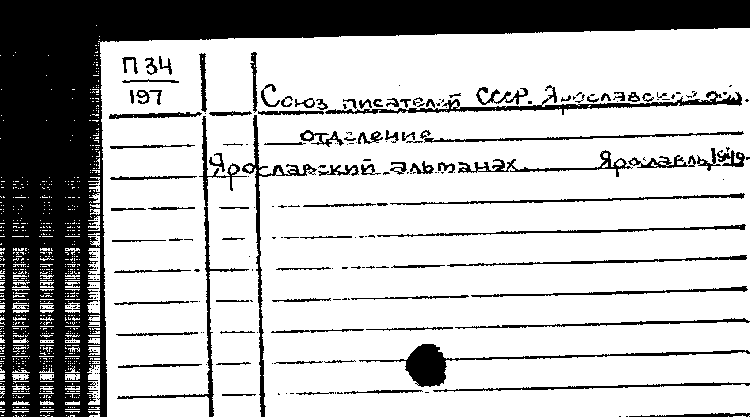 П 34
197
Союз писателей СССР. Ярославское обл.
отделение.
Ярославский альманах. Ярославль, 1949-